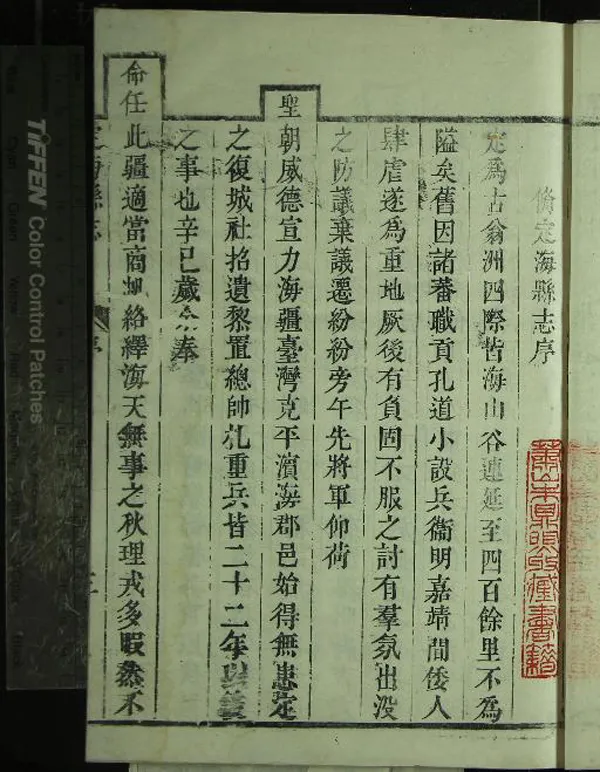 脩定海縣志序
定為古翁洲四際皆海山谷連延至四百餘里不為
隘矣舊因諸蕃職貢孔道小設兵衞明嘉靖間倭人
肆虐遂為重地厥後有負固不服之討有羣氛出沒
之防議棄議遷紛紛旁午先將軍仰荷
聖朝威德宣力海疆臺灣克平濵海郡邑始得無患定
之復城社招遺黎置總帥札重兵皆二十二年
之事也辛巳歲余奉
命任此疆適當商舶絡繹海天無事之秋理戎多暇然不
定海縣志
序
蕭山朱鼎煦收藏書籍
TIFFEN Color Control Patches